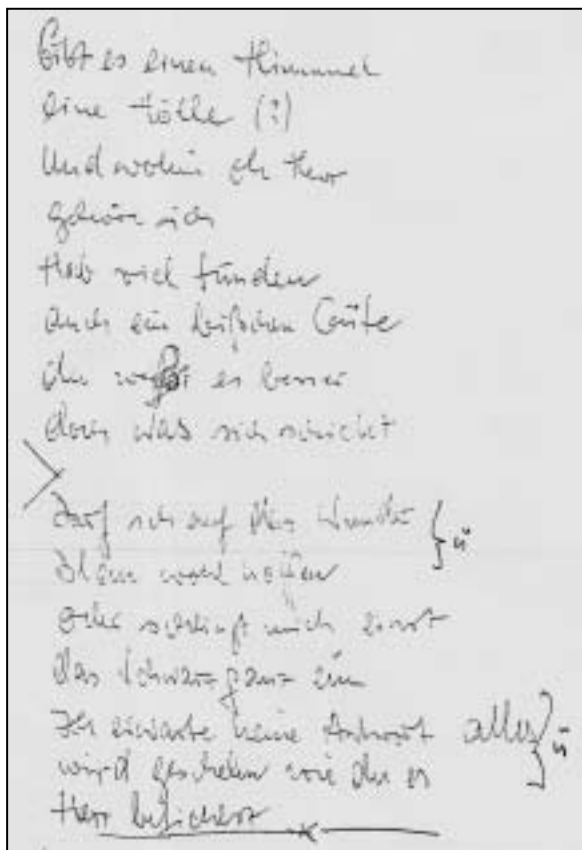 Gibt es einen Himmel
eine Hölle (?)
Und wohin oh Herr
gehör ich
Hab viel Sünden
auch ein bißchen Güte
du weißt es besser
doch was sich schickt
Darf ich auf das Wunder } ü
wohl hoffen
oder schlingt mich einst
das Schwarz ganz ein
Ich erwarte keine Antwort alles } ü
wird geschehen wie du es
Herr